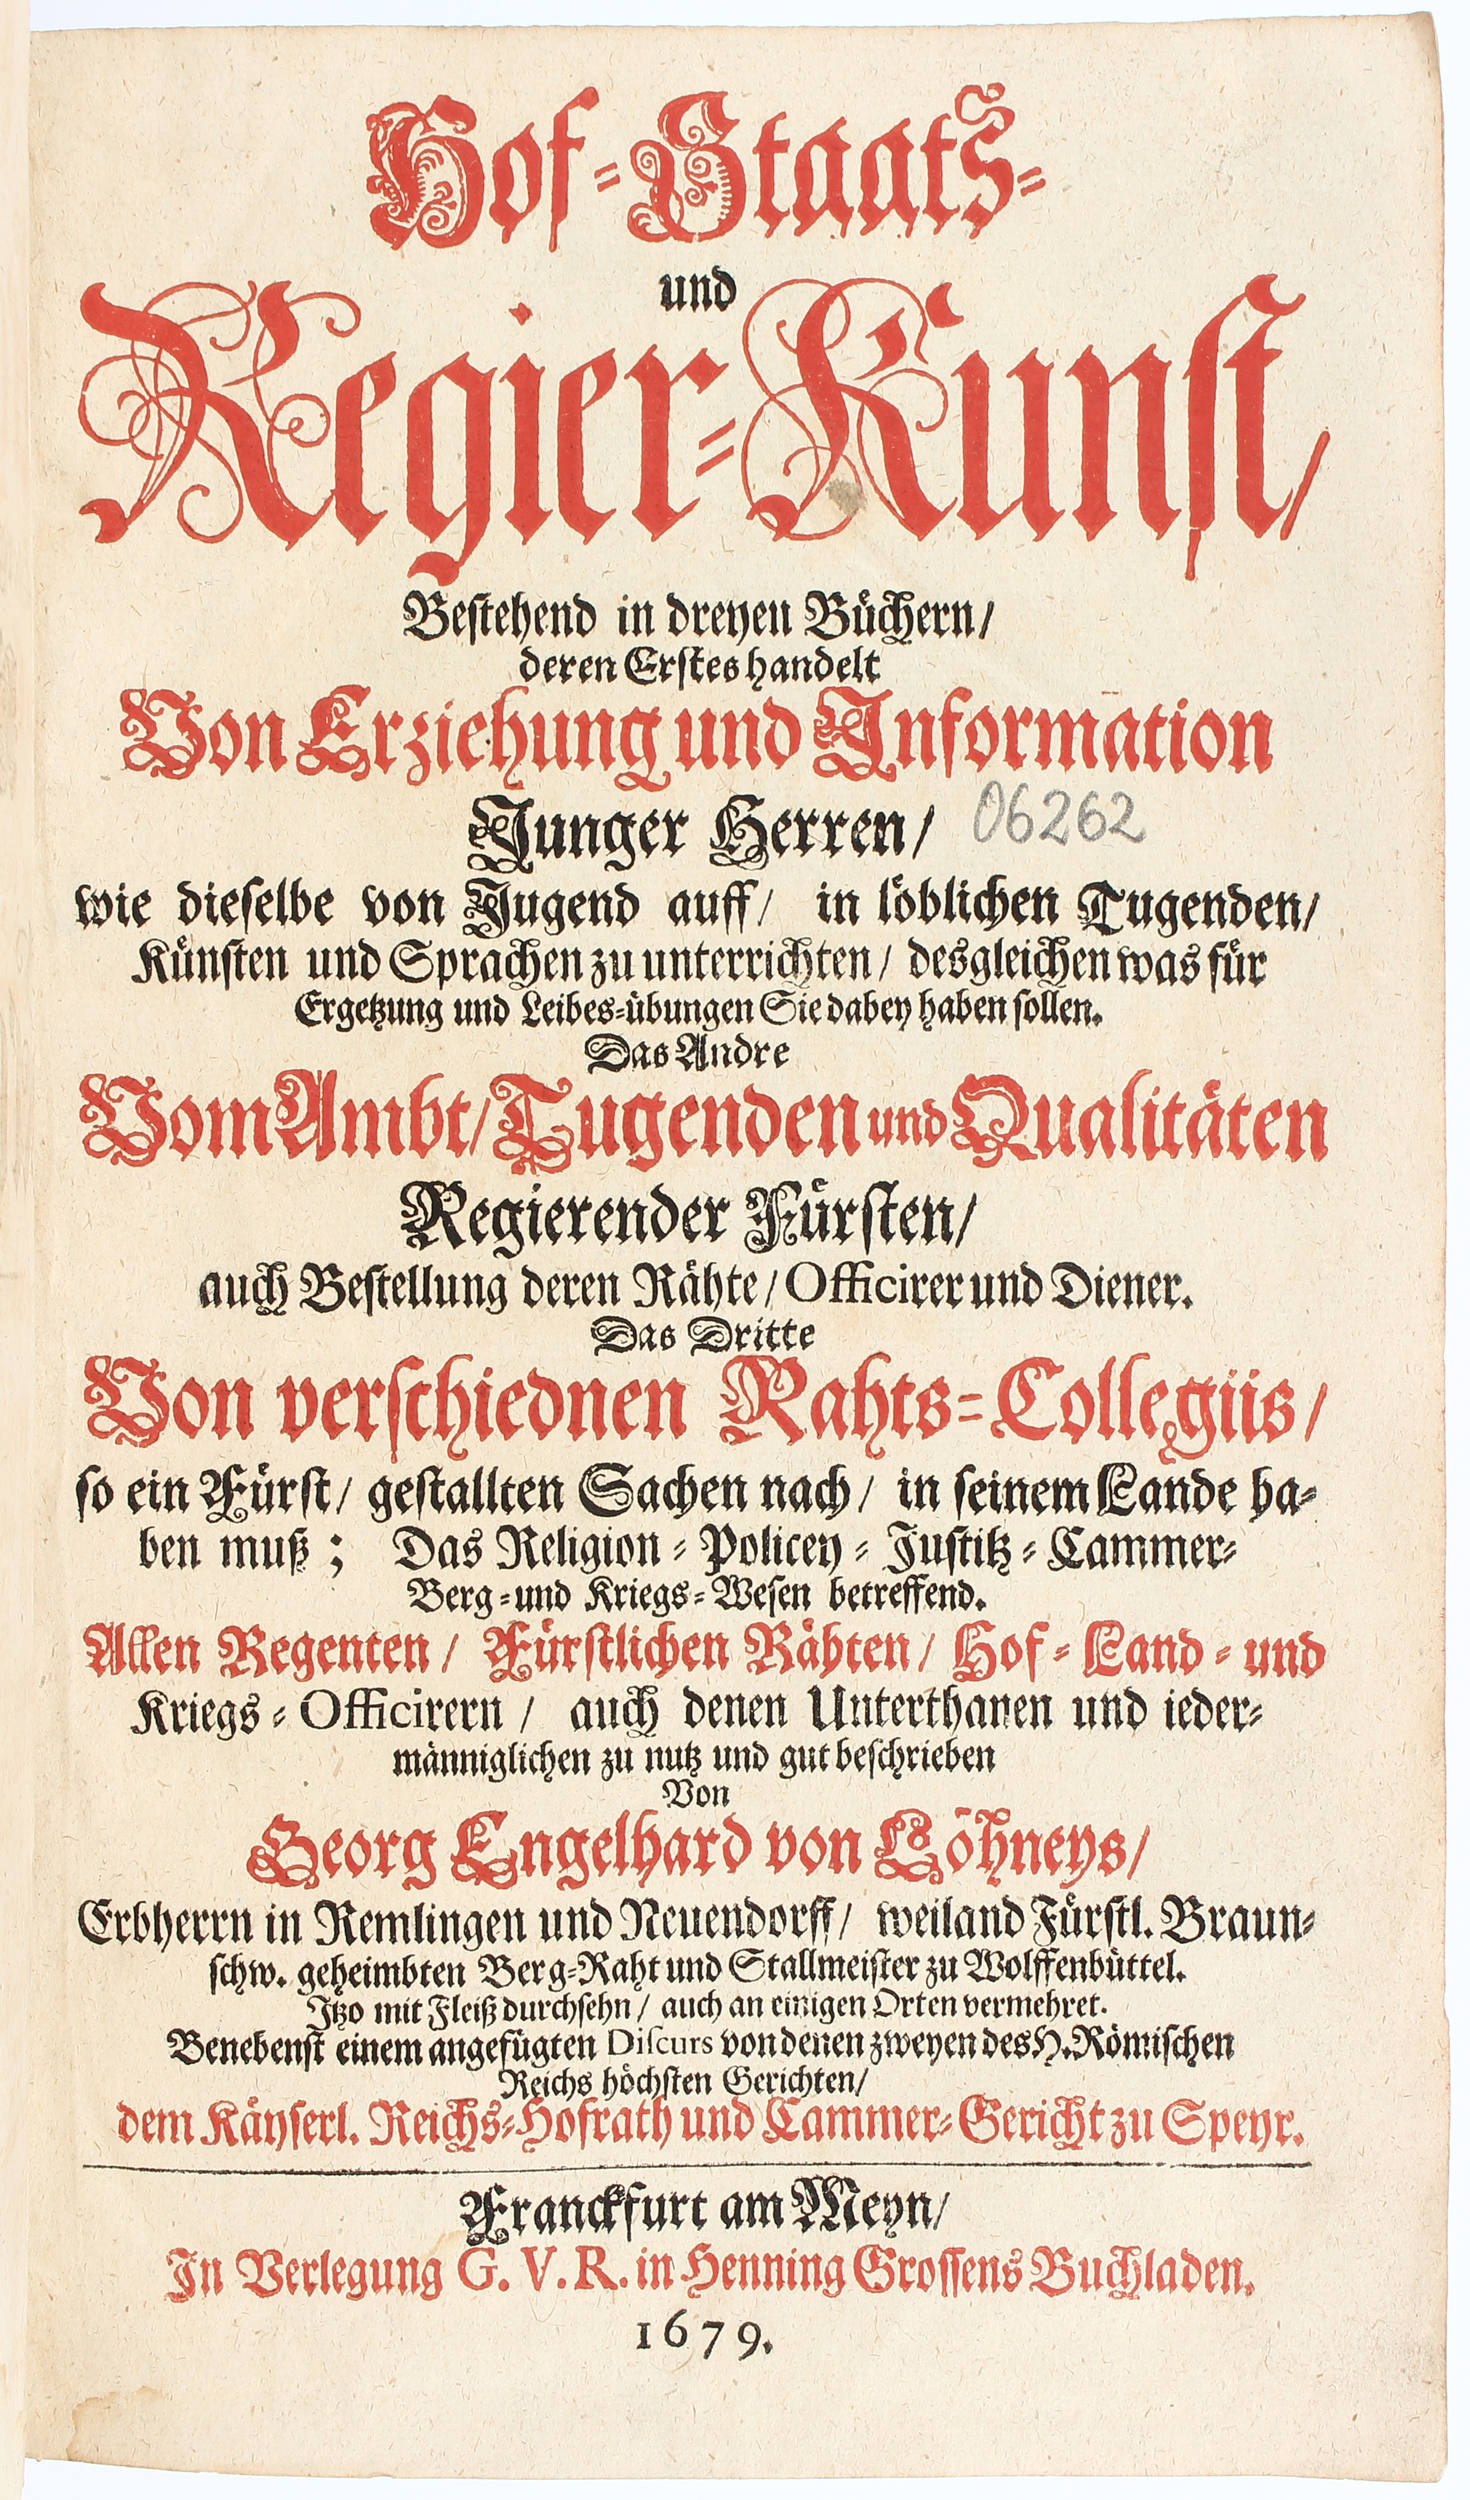 Hof-Staats-
und
Regier-Kunst/
Bestehend in dreyen Büchern/
deren Erstes handelt
Von Erziehung und Information
Junger Herren/ 06262
wie dieselbe von Jugend auff/ in löblichen Tugenden/
Künsten und Sprachen zu unterrichten/ desgleichen was für
Ergetzung und Leibes-übungen Sie dabey haben sollen.
Das Andre
Vom Ambt/ Tugenden und Qualitäten
Regierender Fürsten/
auch Bestellung deren Rähte/ Officirer und Diener.
Das Dritte
Von verschiednen Rahts-Collegiis/
so ein Fürst/ gestallten Sachen nach/ in seinem Lande ha-
ben muß; Das Religion-Policey-Justitz-Cammer-
Berg-und Kriegs-Wesen betreffend.
Allen Regenten/ Fürstlichen Rähten/ Hof-Land-und
Kriegs-Officirern/ auch denen Unterthanen und ieder-
männiglichen zu nutz und gut beschrieben
Von
Georg Engelhard von Löhneys/
Erbherrn in Remlingen und Neuendorff/ weiland Fürstl. Braun-
schw. geheimbten Berg-Raht und Stallmeister zu Wolffenbüttel.
Itzo mit Fleiß durchsehn/ auch an einigen Orten vermehret.
Benebenst einem angefügten Discurs von denen zweyen des H. Römischen
Reichs höchsten Gerichten/
dem Käyserl. Reichs-Hofrath und Cammer-Gericht zu Speyr.
Franckfurt am Meyn/
In Verlegung G. V. R. in Henning Grossens Buchladen.
1679.